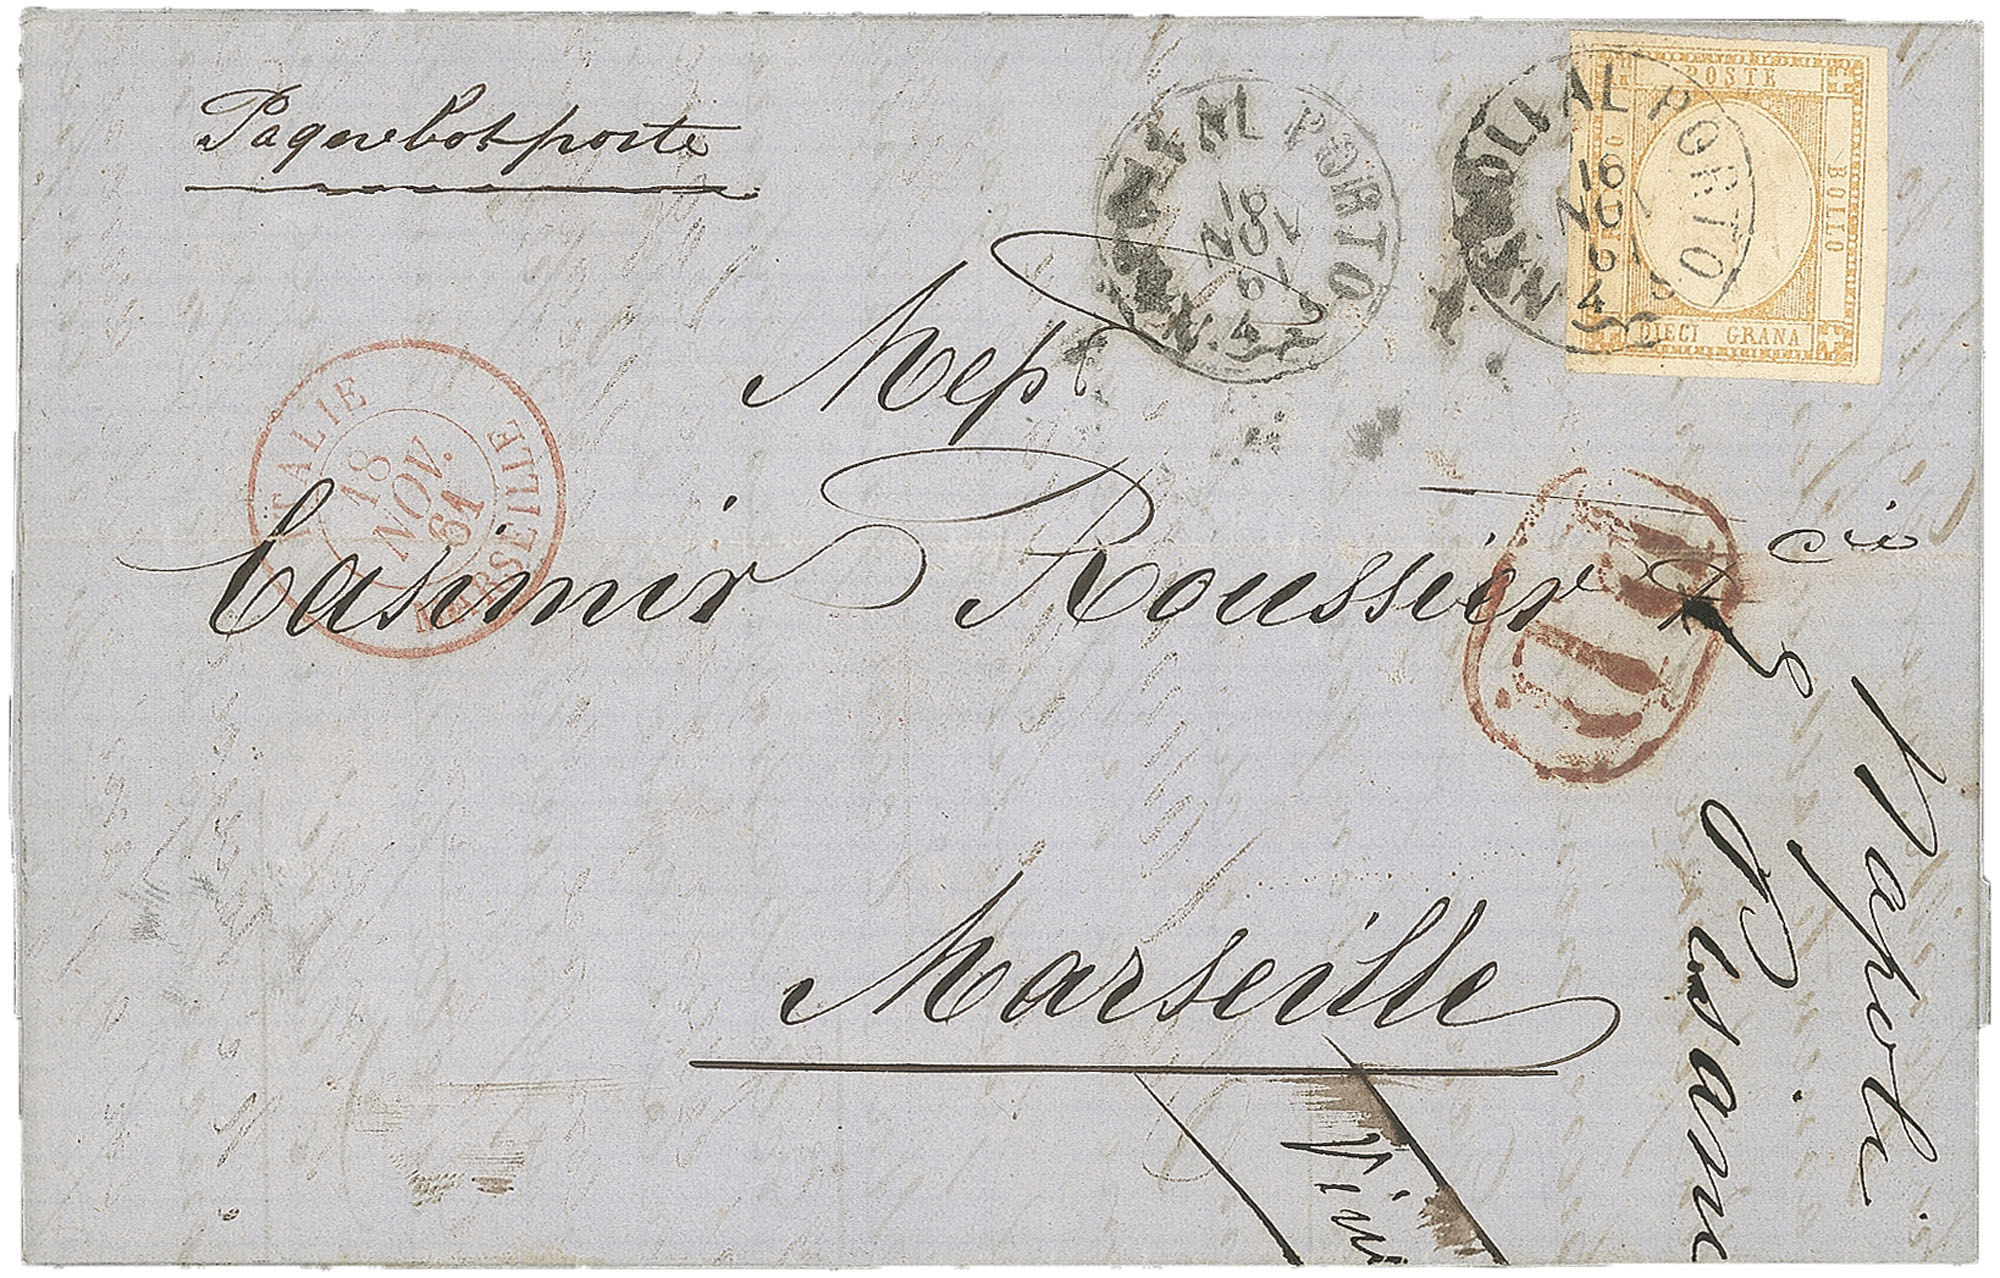 Paquebot poste
NAPOLI AL PORTO
16
NOV
61
4 S
NAPOLI AL PORTO
16
NOV
61
4 S
POSTE
BOLLO
DIECI GRANA
ITALIE
18
NOV.
61
MARSEILLE
PD
Mess.
Casimir Roussier & Cie
Marseille
Napoli
Pisani